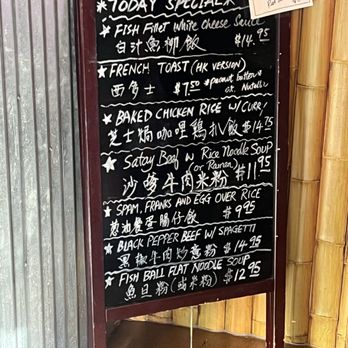 *TODAY SPECIAL*
FISH Fillet White Cheese Sauce
白汁魚柳飯 $14.95
FRENCH TOAST (HK VERSION)
西多士 $7.50 *peanut butter
or Nutella
BAKED CHICKEN RICE W/CURRY
芝士焗咖哩鷄扒飯 $14.75
Satay Beef w Rice Noodle Soup
(or Ramen)
沙爹牛肉米粉 $11.95
SPAM, FRANKS AND EGG OVER RICE
葱油餐蛋腸仔飯 $9.95
BLACK PEPPER BEEF W/SPAGETTI
黑椒牛肉炒意粉 $14.95
FISH BALL FLAT NOODLE SOUP
魚旦粉(或米粉) $12.95